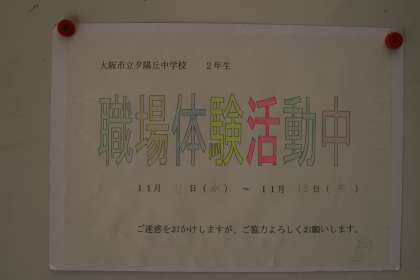 大阪市立夕陽丘中学校　２年生
職場体験活動中
１１月　日（水）　～　１１月　日（　）
ご迷惑をおかけしますが、ご協力よろしくお願いします。